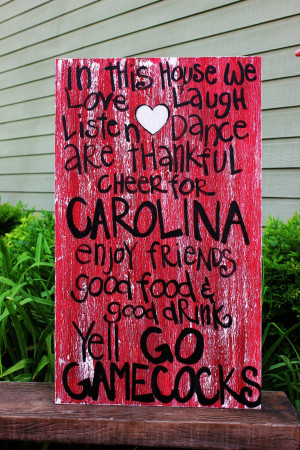 In This House We
Love Laugh
Listen Dance
are Thankful
Cheer for
CAROLINA
enjoy friends
good food &
good drink
Yell GO
GAMECOCKS